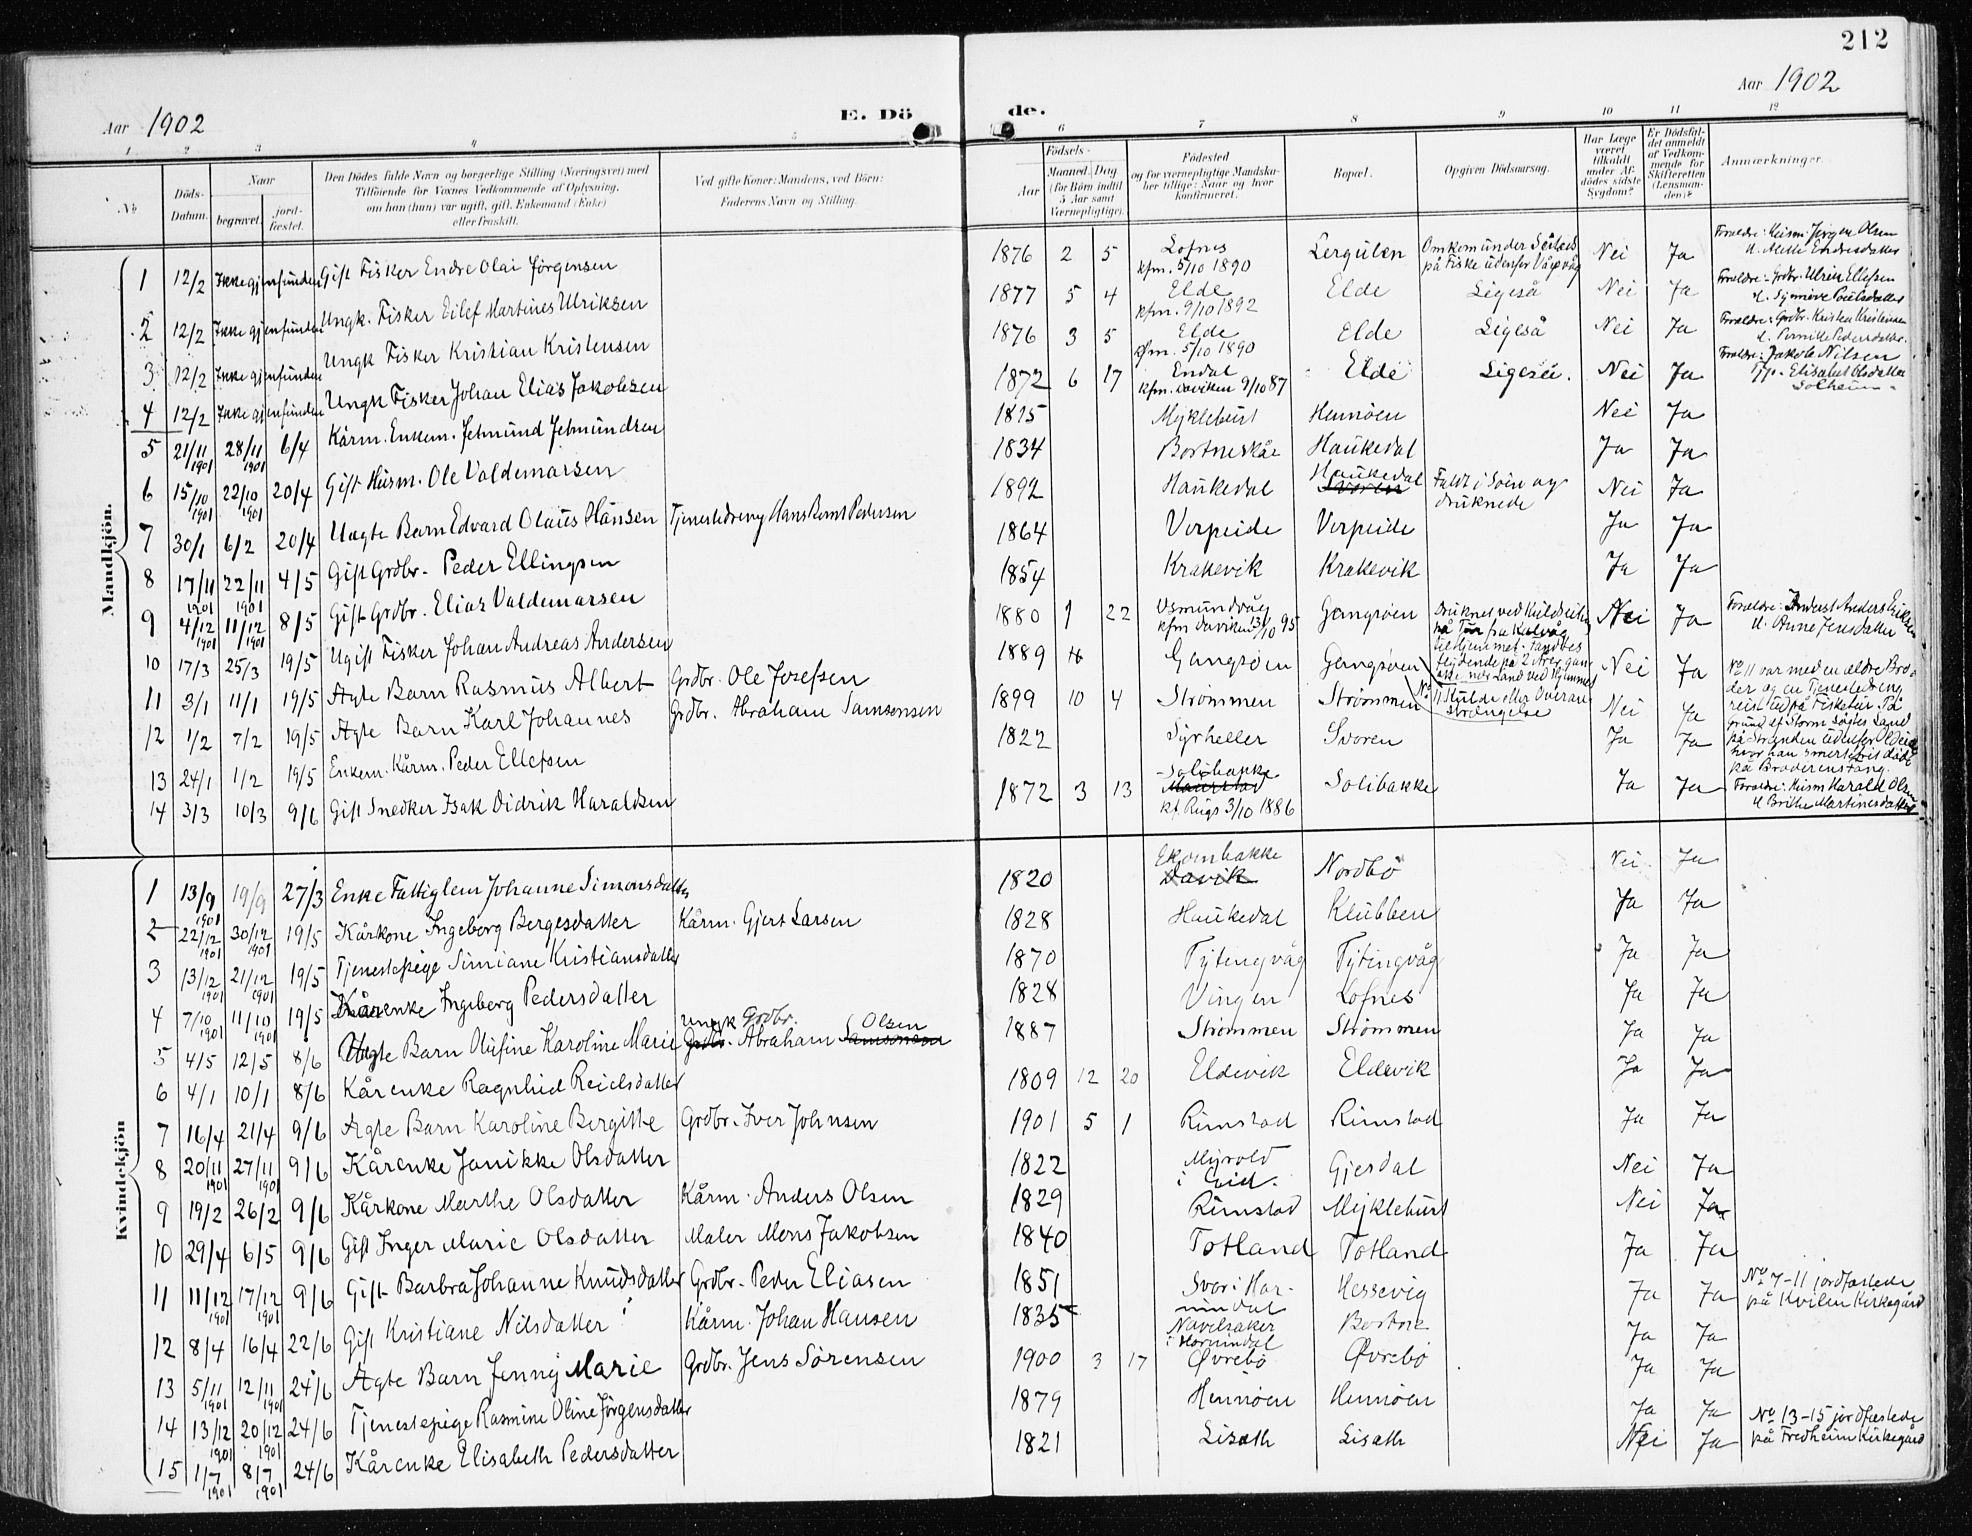 212
Aar 1902
E. Döde.
Aar 1902
1 2 3 4 5 6 7 8 9 10 11 12
№
Döds-Datum.
Naar
begravet.
jordfæstet.
Den Dödes fulde Navn og borgerlige Stilling (Næringsvei) med
Tilföiende for Voxnes Vedkommende af Oplysning,
om han (hun) var ugift, gift, Enkemand (Enke)
eller fraskilt.
Ved gifte Koner: Mandens, ved Börn:
Faderens Navn og Stilling.
Födsels-
Aar
Maaned. Dag
(for Börn indtil
5 Aar samt
Værnepligtige).
Födested
og for værnepligtige Mandskaber tillige: Naar og hvor
konfirmeret.
Bopæl.
Opgiven Dödsaarsag.
Har Læge
været
tilkaldt
under Afdödes sidste
Sygdom?
Er Dödsfaldet anmeldt
af Vedkommende for
Skifteretten
(Lensmanden)?
Anmærkninger.
Mandkjön.
1 12/2 Ikke gjenfunden Gift Fisker Endre Olai Jörgensen 1876 2 5 Lofnes kfm. 5/10 1890 Lergulen Omkom under Seilads på Fiske udenfor Vågsvåg Nei Ja Forældre: Husm. Jörgen Olsen
2 12/2 Ikke gjenfunden Ungk. Fisker Eilef Martines Ulriksen 1877 5 4 Elde kfm. 9/10 1892 Elde Ligeså Nei Ja Forældre: Grdbr. Ulrik Ellefsen
3 12/2 Ikke gjenfunden Ungk Fisker Kristian Kristensen 1876 3 5 Elde kfm. 5/10 1890 Elde Ligeså Nei Ja Forældre: Grdbr. Kristen Kristensen
4 12/2 Ikke gjenfunden Ungk Fisker Johan Elias Jakobsen 1872 6 17 Endal kfm. Daviken 9/10 87 Elde Ligeså. Nei Ja Forældre: Jakob Nilsen Elisabet Olsdatter Solheim
5 21/11 1901 28/11 1901 6/4 Kårm. Enkem. Jetmund Jetmundsen 1815 Myklebust Hennöen Nei Ja
6 15/10 1901 22/10 1901 20/4 Gift Husm. Ole Valdemarsen 1834 Bortneskåe Haukedal Ja Ja
7 30/1 6/2 20/4 Uægte Barn Edvard Olaus Hansen Tjenestedreng Hans Bernt Pedersen 1892 Haukedal Haukedal Svoren Faldt i Söen og druknede Nei Ja
8 17/11 1901 22/11 1901 4/5 Gift Grdbr. Peder Ellingsen 1864 Verpeide Verpeide Ja Ja
9 4/12 1901 11/12 1901 8/5 Gift Grdbr. Elias Valdemarsen 1854 Krakevik Krakevik Ja Ja
10 17/3 25/3 19/5 Ugift Fisker Johan Andreas Andersen 1880 1 22 Osmundvåg kfm Daviken 13/10 95 Gangsöen Nei Ja
11 3/1 11/1 19/5 Ægte Barn Rasmus Albert Grdbr. Ole Josefsen 1889 Gangsöen Gangsöen Nei Ja No 11 var med en ældre Broder og en Tjenestedreng
12 1/2 7/2 19/5 Ægte Barn Karl Johannes Grdbr. Abraham Samsonsen 1899 10 4 Strömmen Strömmen Nei Ja
13 24/1 1/2 19/5 Enkem. Kårm. Peder Ellefsen 1822 Syrheller Svoren Ja Ja
14 3/3 10/3 9/6 Gift Snedker Isak Didrik Haraldsen 1872 3 13 Solibakke Maurstad kf. Rugs 3/10 1886 Solibakke Ja Ja Forældre: Husm Harald Olsen
Kvindekjön
1 13/9 1901 19/9 27/3 Enke Fattiglem Johanne Simonsdatter 1820 Ekornbakke Davik Nordbö Nei Ja
2 22/12 1901 30/12 1901 19/5 Kårkone Ingeborg Bergesdatter Kårm. Gjert Larsen 1828 Haukedal Klubben Ja Ja
3 13/12 1901 21/12 1901 19/5 Tjenestepige Simiane Kristiansdatter 1870 Tytingvåg Tytingvåg Ja Ja
4 7/10 1901 11/10 1901 19/5 Kårenke Ingeborg Pedersdatter 1828 Vingen Lofnes Ja Ja
5 4/5 12/5 8/6 Uægte Barn Olufine Karoline Marie Ungk Grdbr. Grdbr. Abraham Samsonsen Olsen 1887 Strömmen Strömmen Ja Ja
6 4/1 10/1 8/6 Kårenke Ragnhild Reielsdatter 1809 12 20 Eldevik Eldevik Ja Ja
7 16/4 21/4 9/6 Ægte Barn Karoline Bergitte Grdbr. Iver Johnsen 1901 5 1 Rimstad Rimstad Ja Ja
8 20/11 1901 27/11 1901 9/6 Kårenke Janikke Olsdatter 1822 Myrold i Eid. Gjesdal Nei Ja
9 19/2 26/2 9/6 Kårkone Marthe Olsdatter Kårm. Anders Olsen 1829 Rimstad Myklebust Nei Ja
10 29/4 6/5 9/6 Gift Inger Marie Olsdatter Maler Mons Jakobsen 1840 Totland Totland Ja Ja
11 11/12 1901 17/12 1901 9/6 Gift Barbra Johanne Knudsdatter Grdbr. Peder Eliasen 1851 Svor i Hornindal Hessevig Ja Ja No 7-11 jordfæstede på Kvilen Kirkegård
12 8/4 16/4 22/6 Gift Kristiane Nilsdatter Kårm. Johan Hansen 1835 Navelsaker i Hornindal Bortne Ja Ja
13 5/11 1901 12/11 1901 24/6 Ægte Barn Jenny Marie Grdbr. Jens Sörensen 1900 3 17 Øvrebö Øvrebö Ja Ja
14 13/12 1901 20/12 1901 24/6 Tjenestepige Rasmine Oline Jörgensdatter 1879 Hennöen Hennöen Ja Ja No 13-15 jordfæstede på Fredheim Kirkegård
15 1/7 1901 8/7 1901 24/6 Kårenke Elisabeth Pedersdatter 1821 Lisæth Lisæth Nei Ja